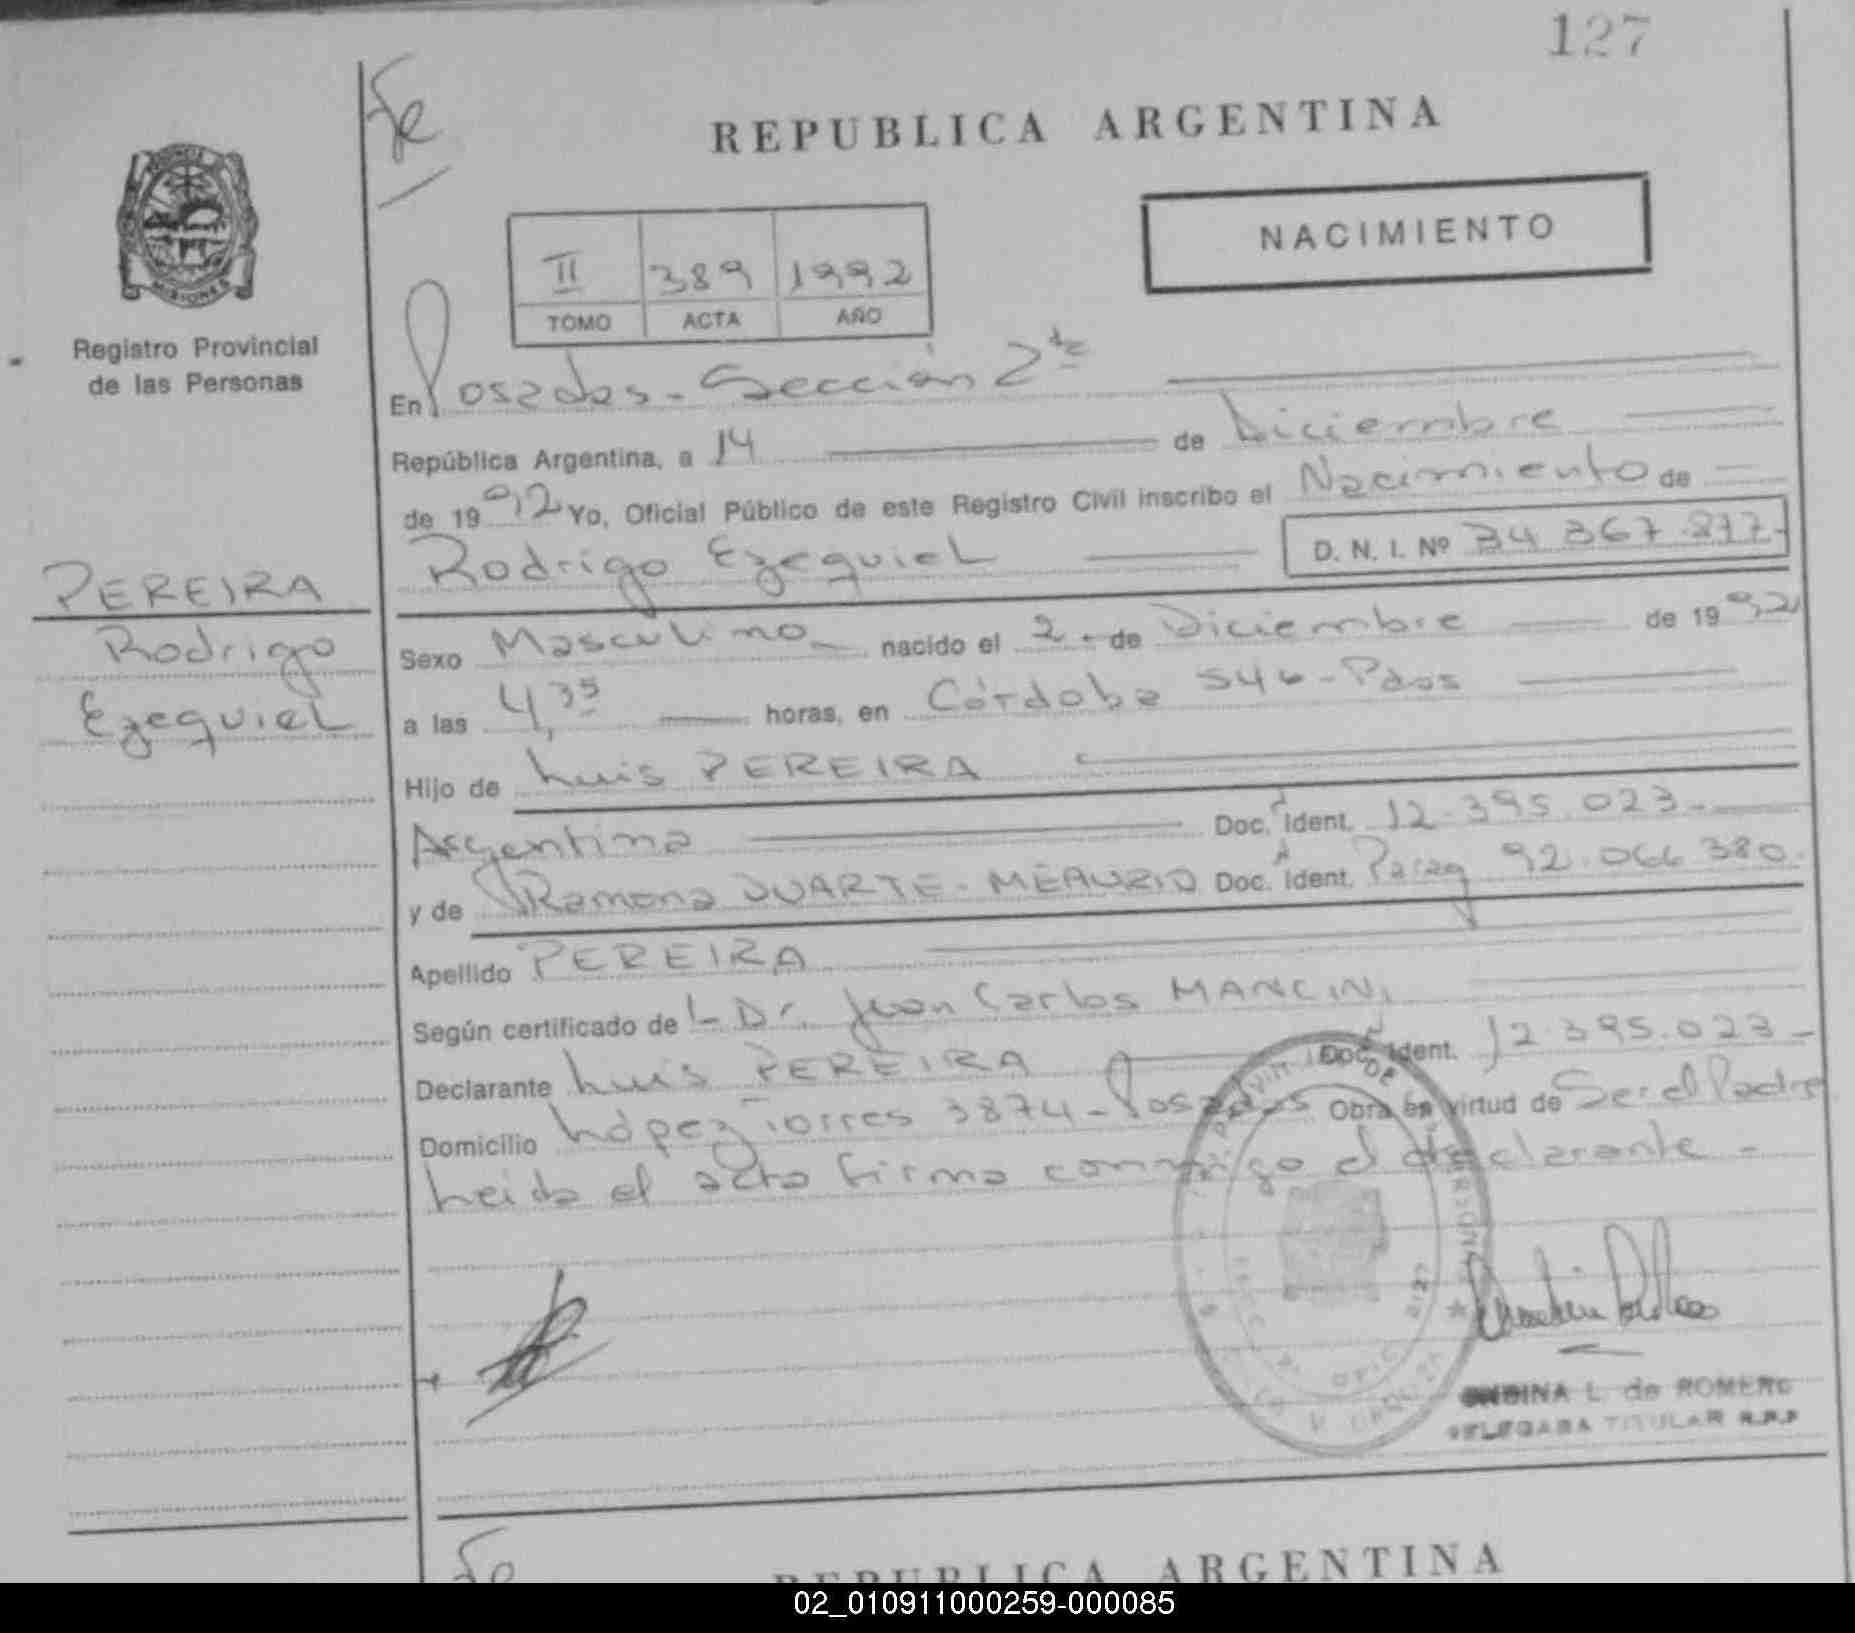 127
Fe
REPUBLICA ARGENTINA
NACIMIENTO
II 389 1992
TOMO ACTA AÑO
MISIONES
Registro Provincial
de las Personas
En Posadas - Sección 2da
República Argentina, a 14 de Diciembre
de 1992 Yo, Oficial Público de este Registro Civil inscribo el Nacimiento de
Rodrigo Ezequiel D. N. I. Nº 34 367 877-
PEREIRA
Rodrigo
Ezequiel
Sexo Masculino nacido el 2 - de Diciembre de 1992
a las 4,35 horas, en Córdoba 546 - Pdas
Hijo de Luis PEREIRA
Argentina Doc. Ident. 12.395.023-
y de Ramona DUARTE - MEAURIO Doc. Ident. Parag 92.066 380.
Apellido PEREIRA
Según certificado de L Dr. Juan Carlos MANCINI
Declarante Luis PEREIRA Doc. Ident. 12.395.023-
Domicilio López Torres 3874 - Posadas Obra en virtud de Ser el Padre
Leida el acta firma conmigo el declarante -
L. de ROMERO
DELEGADA TITULAR R.P.P
Fe
REPUBLICA ARGENTINA
02_010911000259-000085